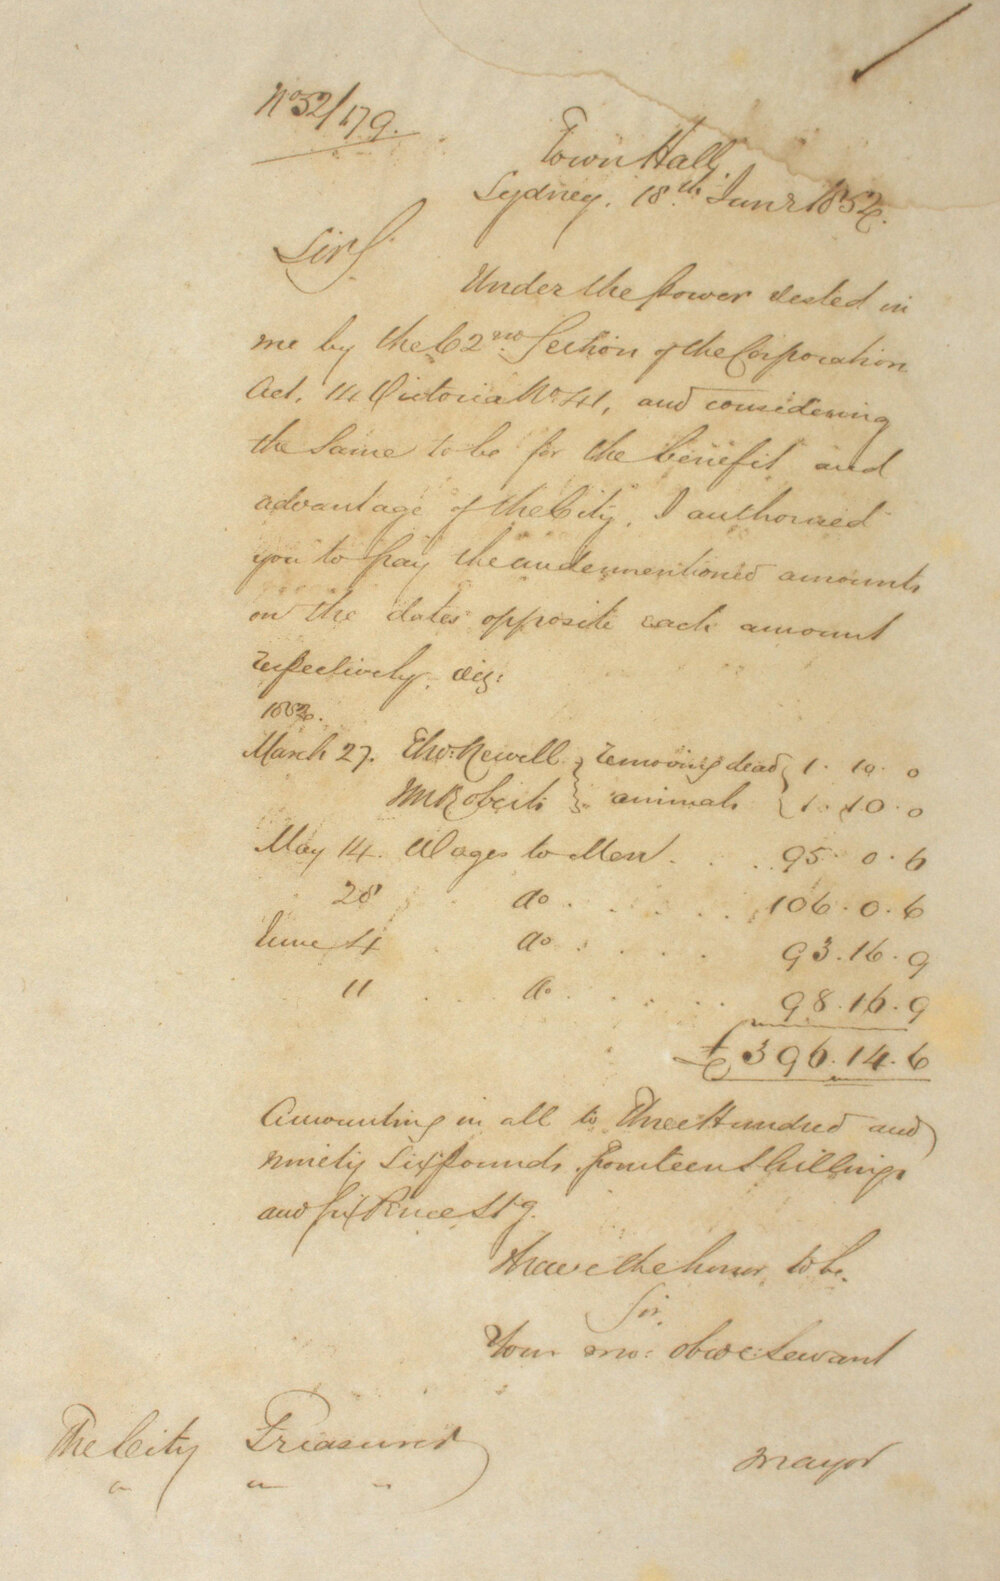 No 52/179.
Town Hall,
Sydney, 18th June 1852.
Sir,
Under the power vested in
me by the 62nd Section of the Corporation
Act, 14 Victoria No 41, and considering
the same to be for the benefit and
advantage of the City, I authorized
you to pay the undermentioned amounts
on the dates opposite each amount
respectively, viz:
1852.
March 27. Thos. Newell } removing dead } 1. 10. 0
Wm Roberts } animals } 1. 10. 0
May 14. Wages to Men . . . 95. 0. 6
28 . do . . . . . 106. 0. 6
June 4 . do . . . . 93. 16. 9
11 . . do . . . . . 98. 16. 9
£396. 14. 6
Amounting in all to Three Hundred and
ninety Six pounds, fourteen Shillings
and Six Pence Stg.
I have the honor to be,
Sir,
Your mo: obdt Servant
The City Treasurer
Mayor